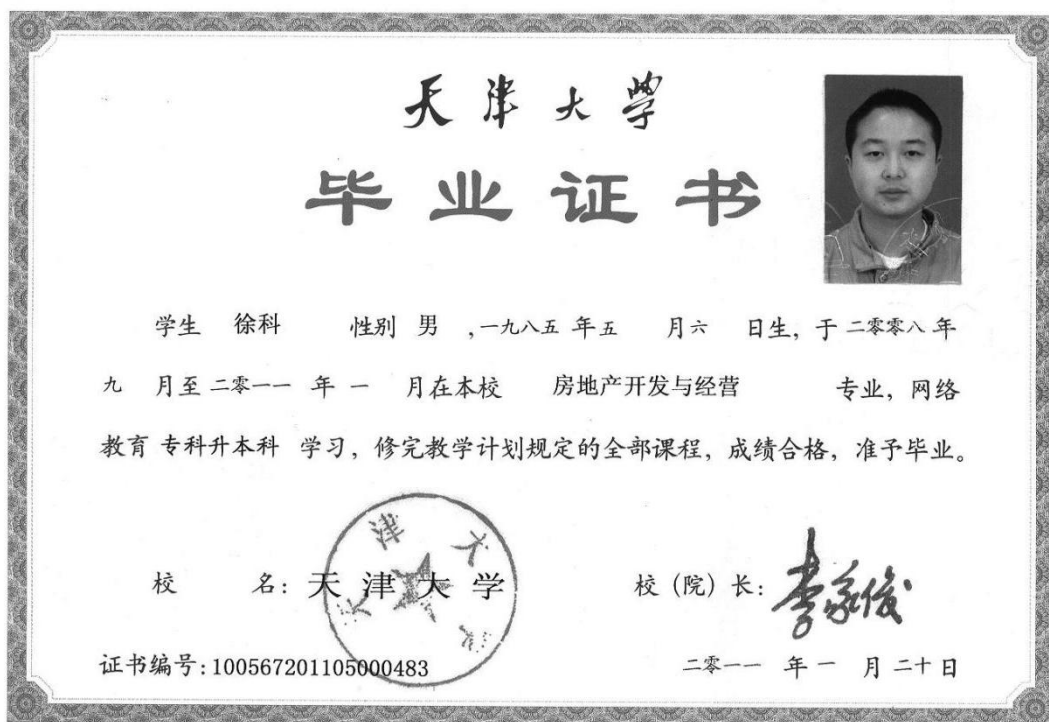 天津大学
毕业证书
学生 徐科 性别 男 ,一九八五 年 五 月 六 日生, 于 二零零八 年
九 月至 二零一一 年 一 月在本校 房地产开发与经营 专业, 网络
教育 专科升本科 学习, 修完教学计划规定的全部课程, 成绩合格, 准予毕业。
校 名: 天津大学 校 (院) 长: 李家俊
天津大学
证书编号:100567201105000483 二零一一 年 一 月 二十 日